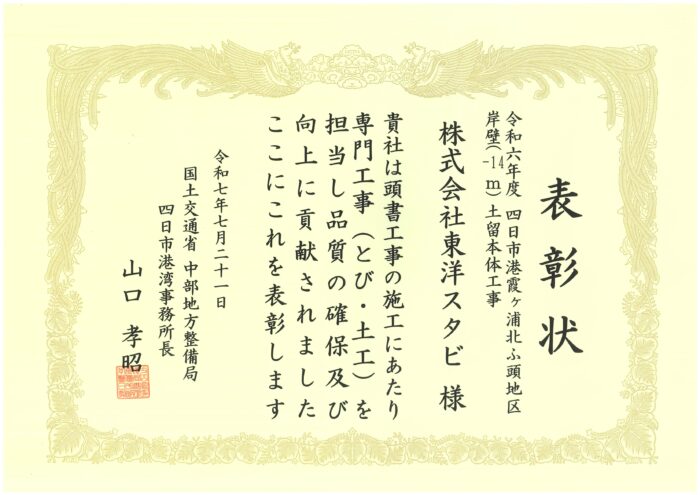 表彰状
令和六年度 四日市港霞ヶ浦北ふ頭地区
岸壁(-14m)土留本体工事
株式会社東洋スタビ 様
貴社は頭書工事の施工にあたり
専門工事（とび・土工）を
担当し品質の確保及び
向上に貢献されました
ここにこれを表彰します
令和七年七月二十一日
国土交通省 中部地方整備局
四日市港湾事務所長
山口 孝昭